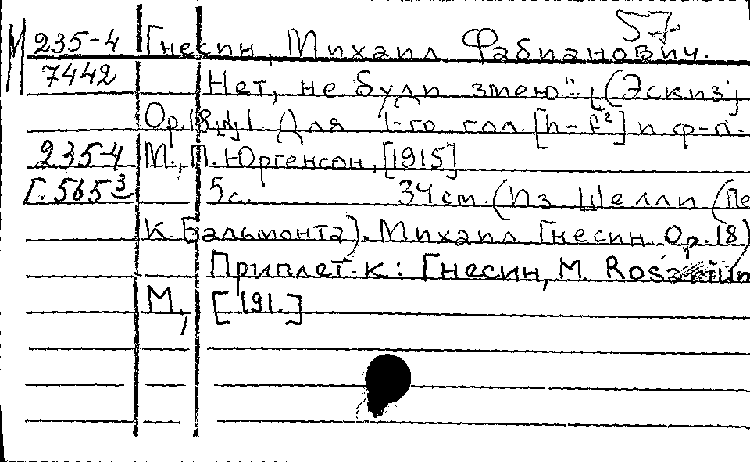 57.
М 235-4 Гнесин, Михаил Фабианович.
7442 Нет, не будь змеею". (Эскиз)
Ор. 18, №1. Для 1-го гол [h-f²] и ф-п.
235-4 М., П. Юргенсон, [1915]
Г. 565³ 5 с. 34 см (Из Шелли (Пе
К. Бальмонта). Михаил Гнесин Ор. 18)
Приплет. к: Гнесин, М.
М., [191.]